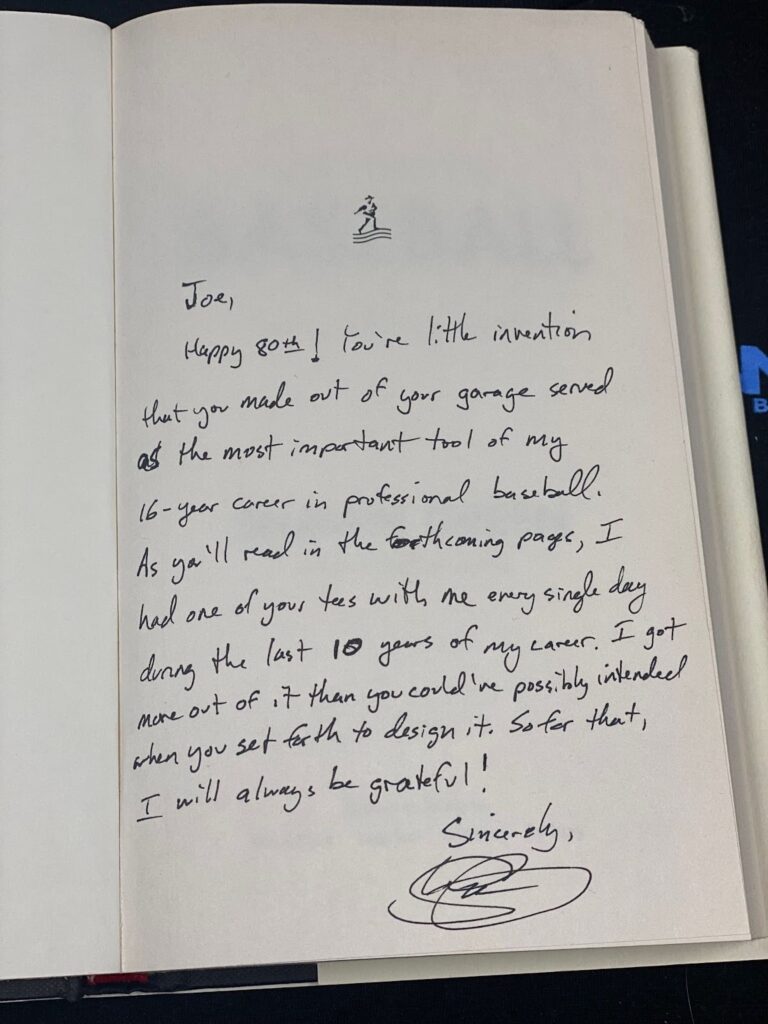 Joe,
Happy 80th! You're little invention
that you made out of your garage served
as the most important tool of my
16-year career in professional baseball.
As you'll read in the forthcoming pages, I
had one of your tees with me every single day
during the last 10 years of my career. I got
more out of it than you could've possibly intended
when you set forth to design it. So for that,
I will always be grateful!
Sincerely,